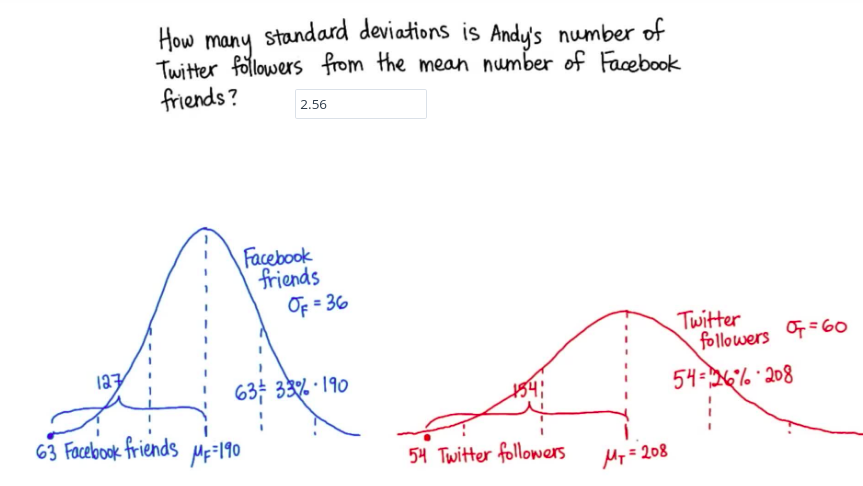 How many standard deviations is Andy's number of
Twitter followers from the mean number of Facebook
friends?
2.56
Facebook
friends
σF = 36
127
63 = 33% · 190
63 Facebook friends
μF=190
Twitter
followers
σT = 60
154
54 = 26% · 208
54 Twitter followers
μT = 208